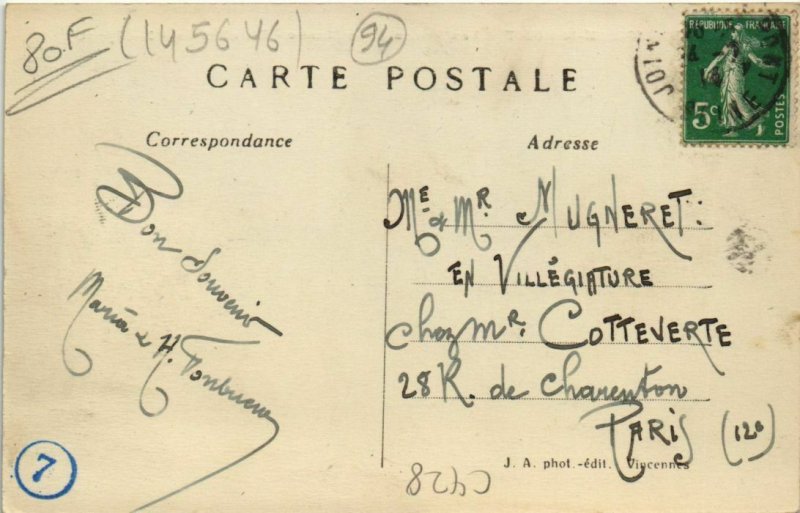 80F (145646) 94
CARTE POSTALE
RÉPUBLIQUE FRANÇAISE
5c POSTES
JOIN
Correspondance
Adresse
Bon Souvenir
Maria & H.
Me & Mr MUGNERET:
EN VILLÉGIATURE
Chez Mr. COTTEVERTE
28 R. de Charenton
PARIS (12e)
7
J. A. phot.-édit. Vincennes
C428